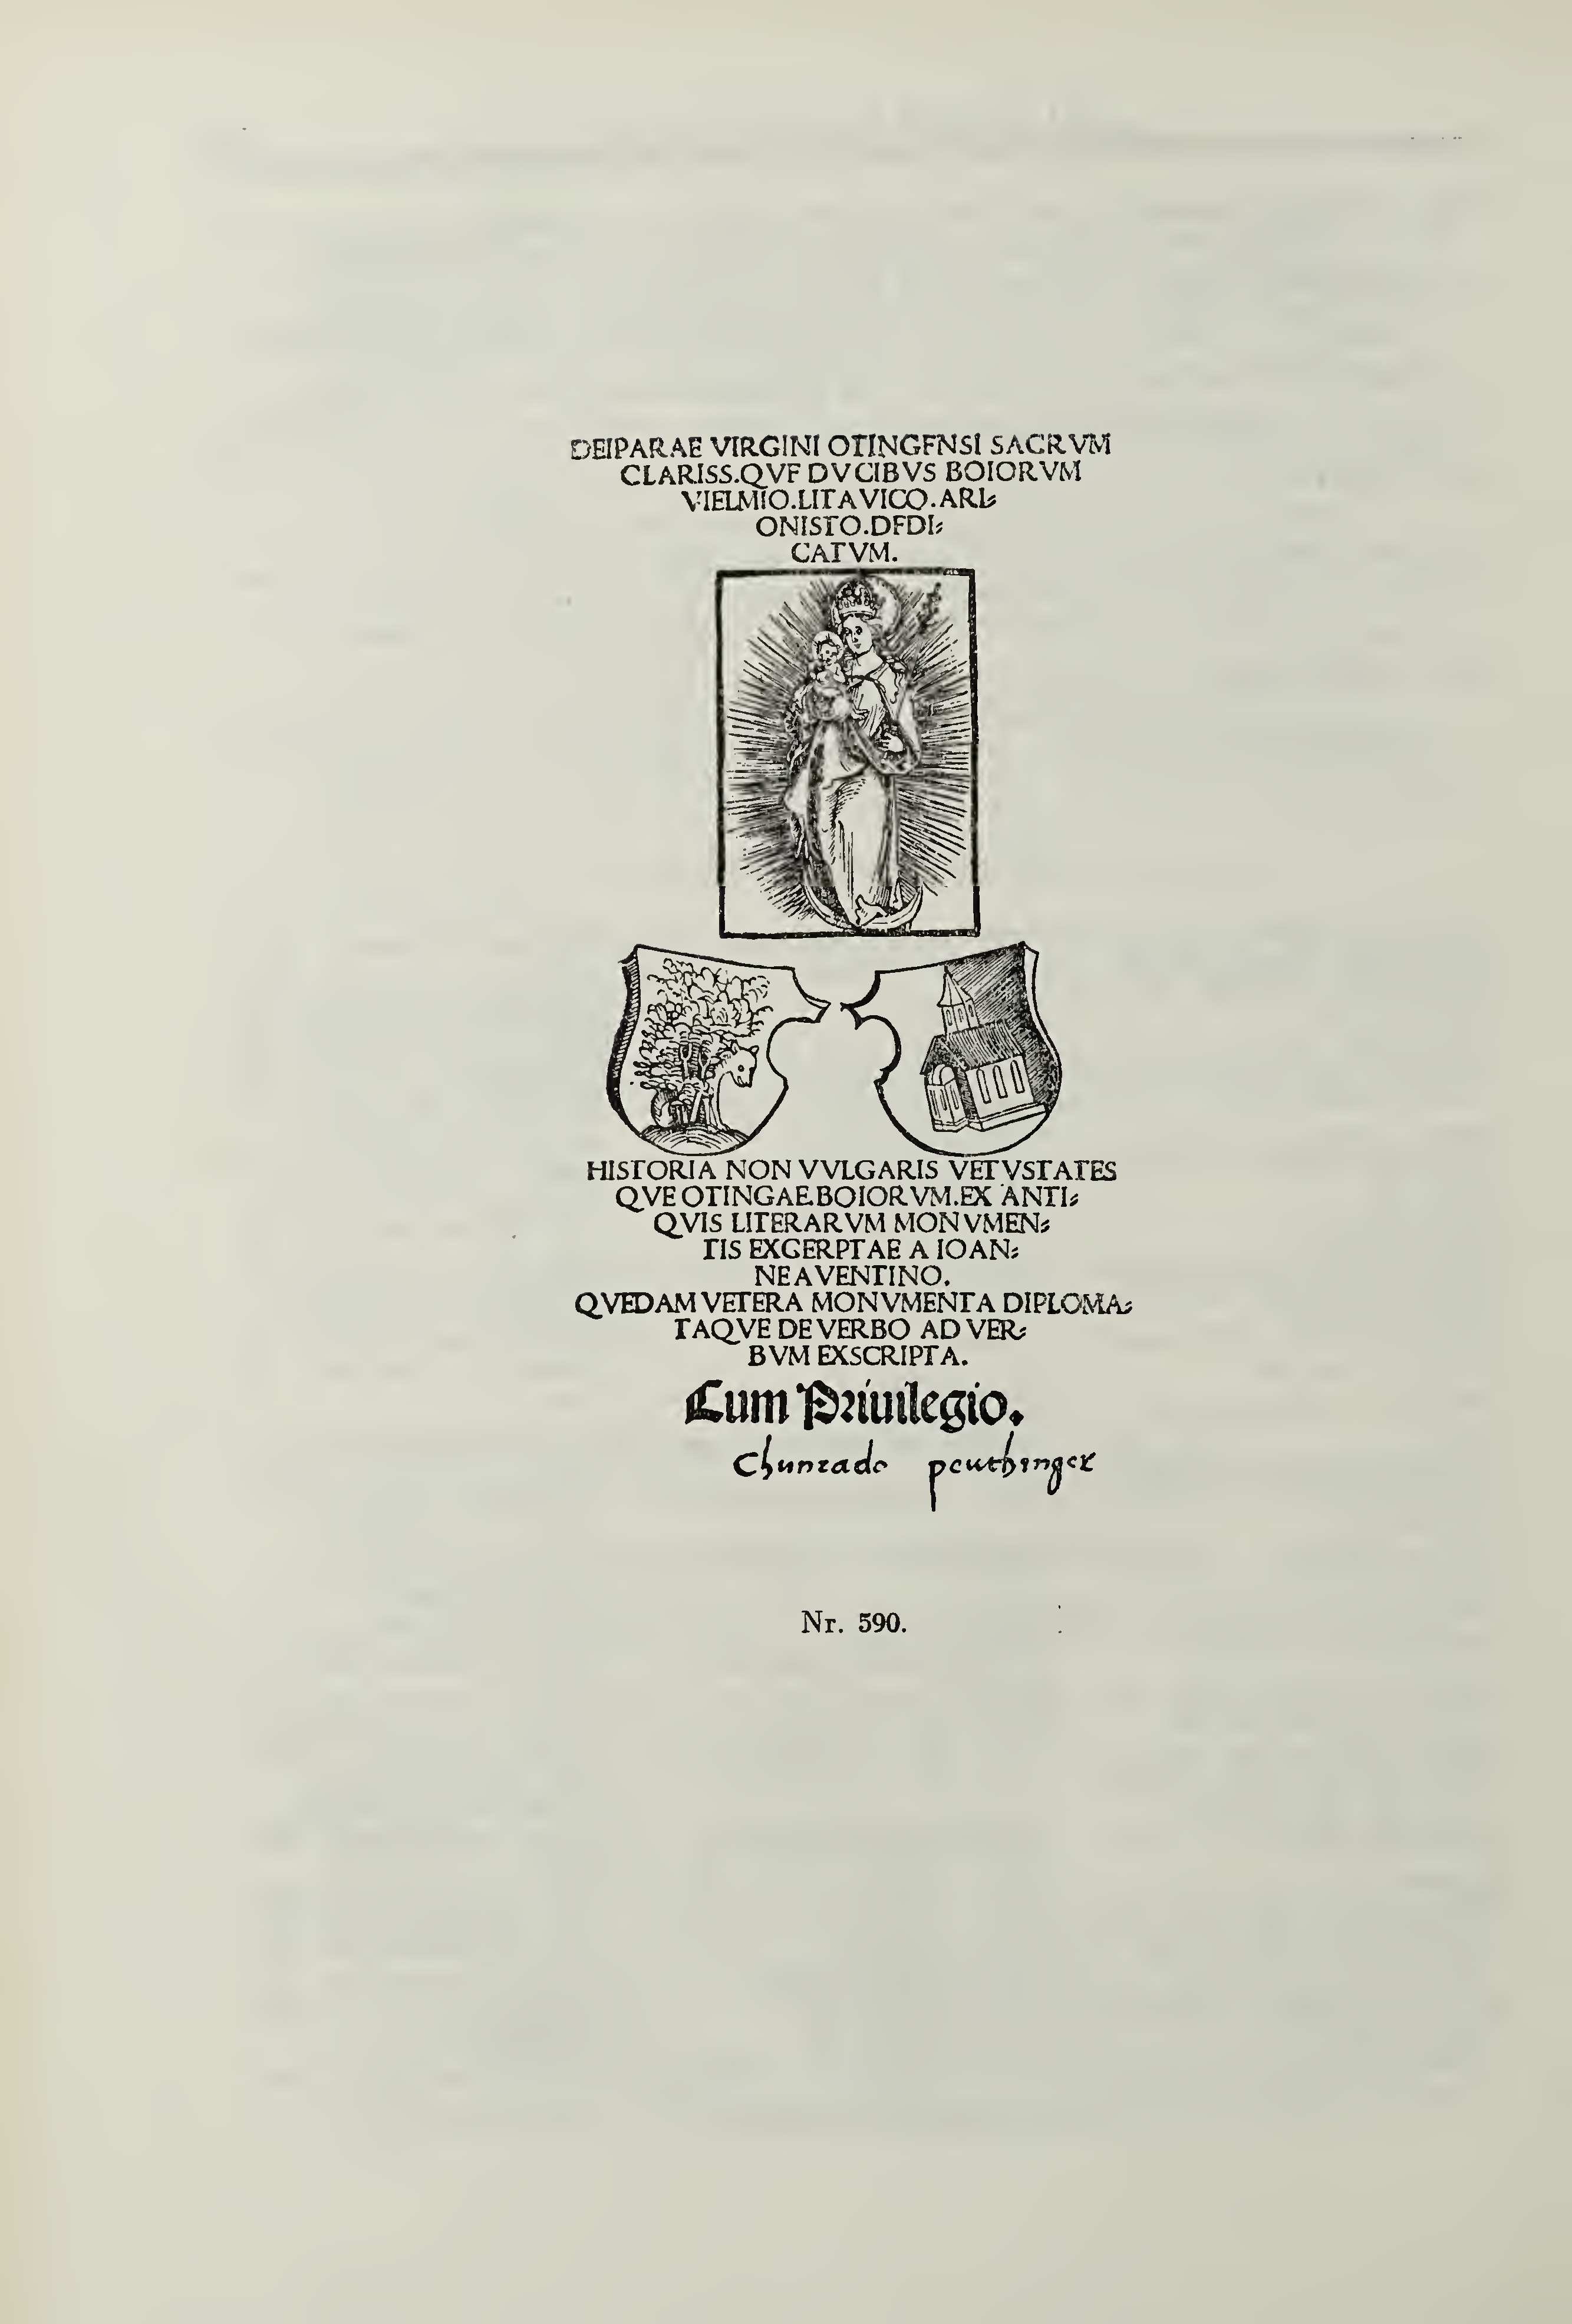 DEIPARAE VIRGINI OTINGENSI SACRVM
CLARISS.QVE DVCIBVS BOIORVM
VIELMIO.LITAVICO.ARI⸗
ONISTO.DEDI⸗
CATVM.
HISTORIA NON VVLGARIS VETVSTATES
QVE OTINGAE.BOIORVM.EX ANTI⸗
QVIS LITERARVM MONVMEN⸗
TIS EXCERPTAE A IOAN⸗
NE AVENTINO.
QVEDAM VETERA MONVMENTA DIPLOMA⸗
TAQVE DE VERBO AD VER⸗
BVM EXSCRIPTA.
Cum Priuilegio.
Chunrado peuthinger
Nr. 590.